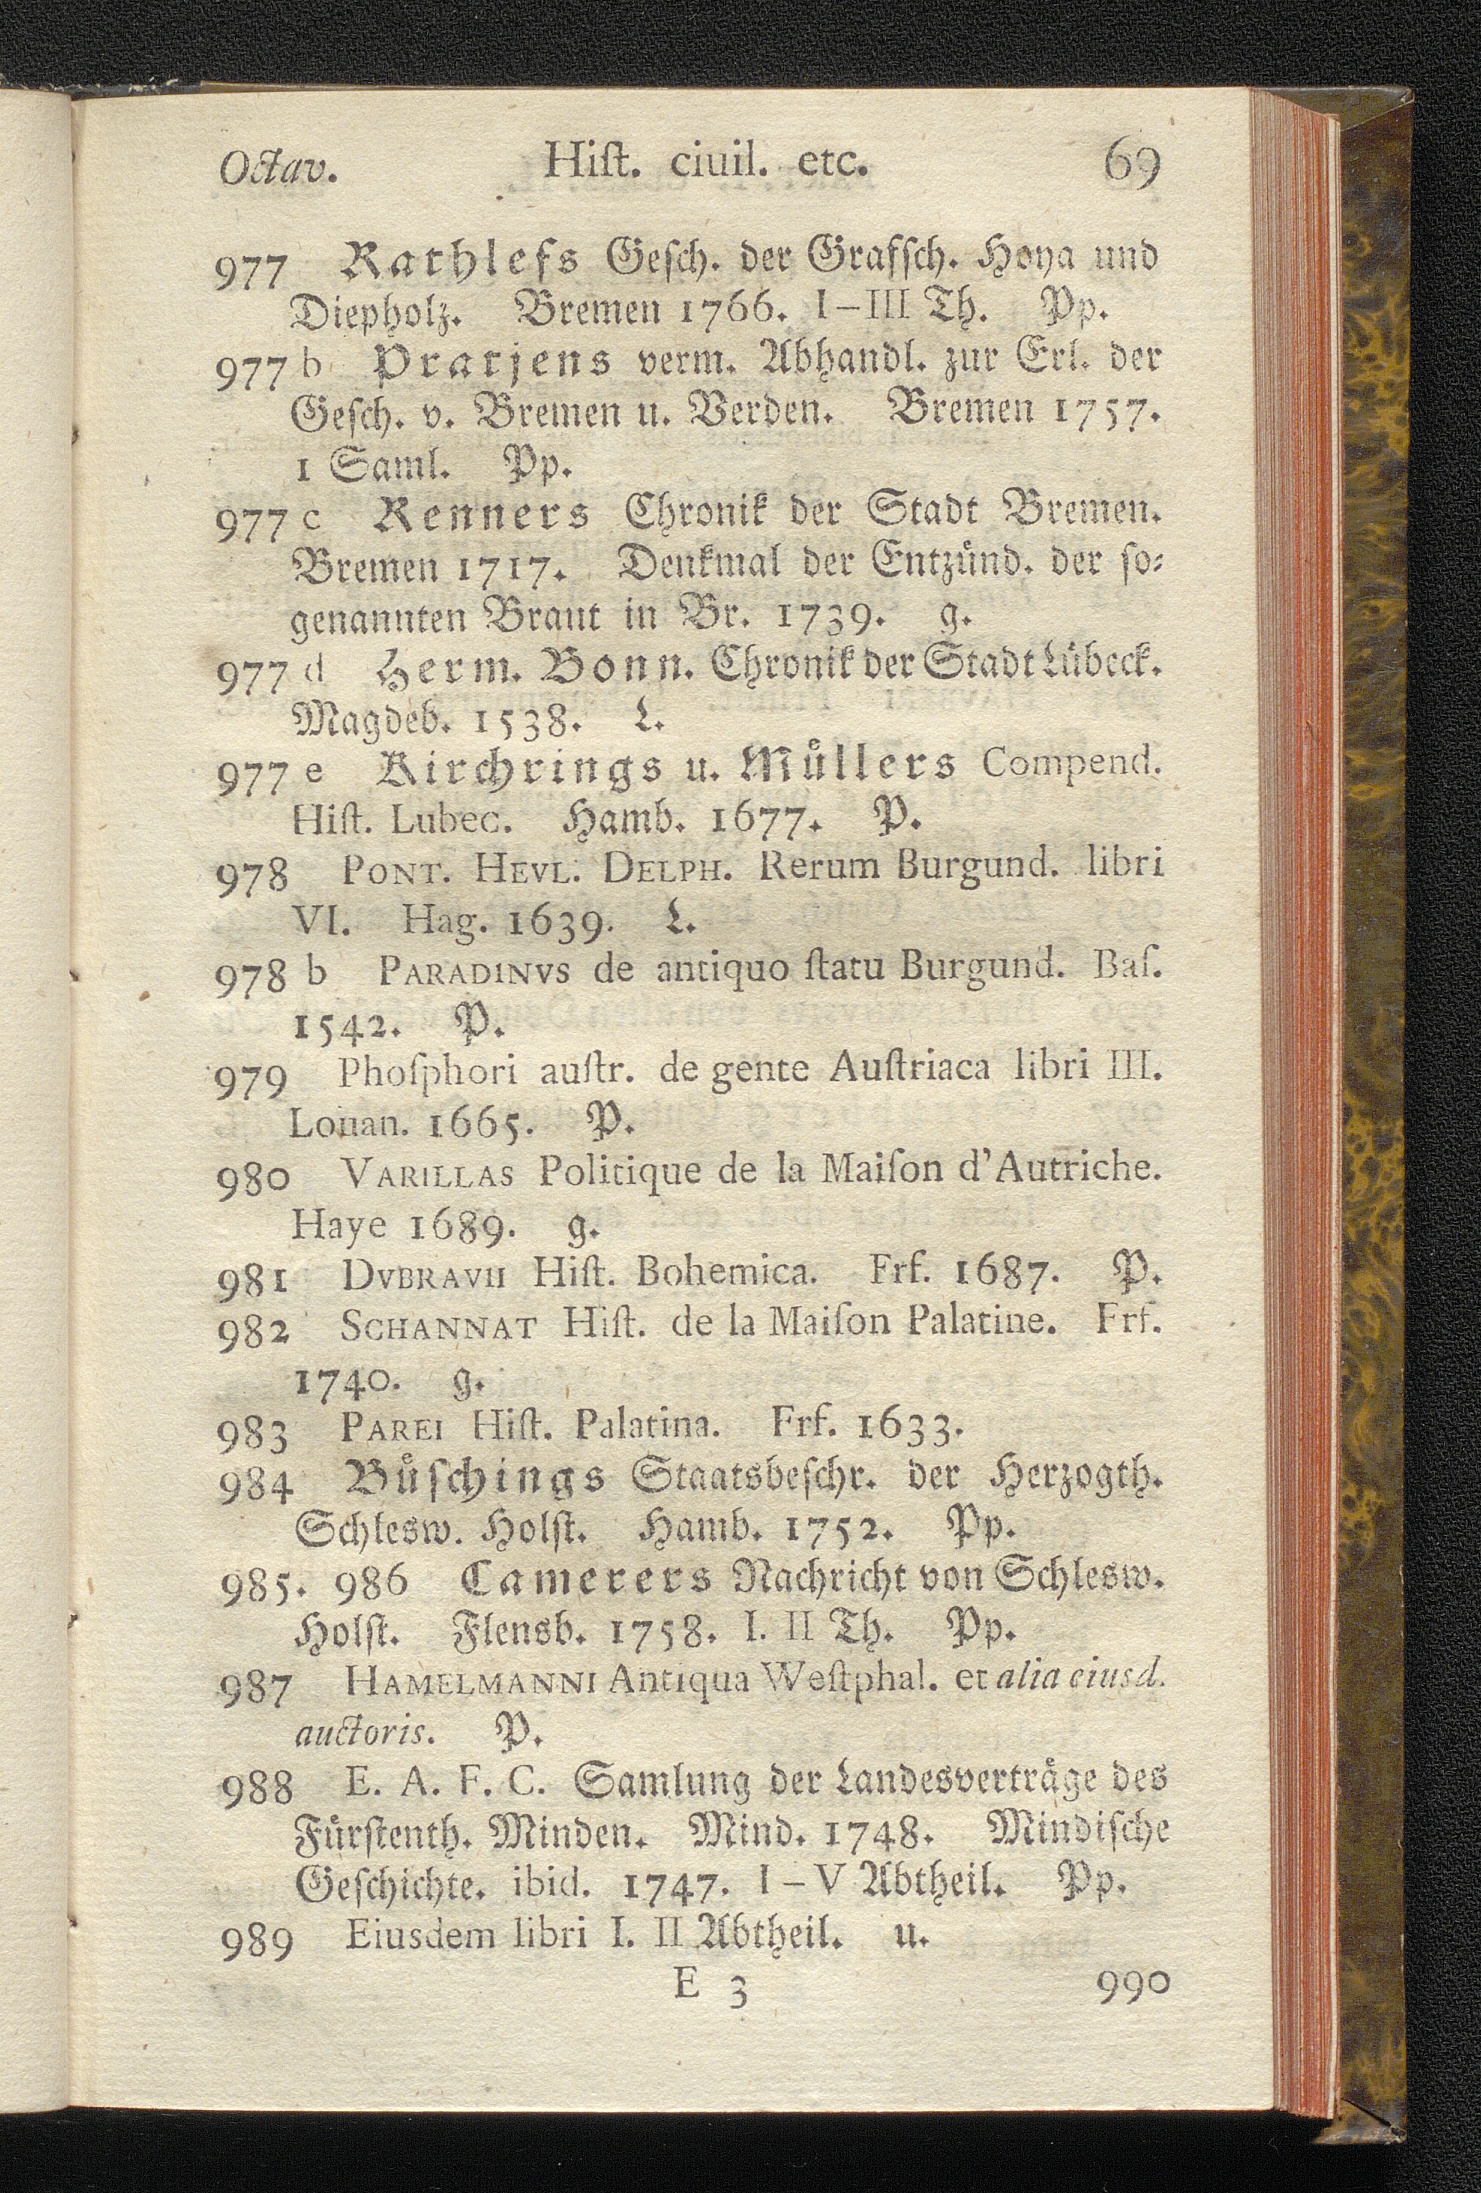 Octav. Hiſt. ciuil. etc. 69
977 Rathlefs Geſch. der Grafſch. Hoya und
Diepholz. Bremen 1766. I–III Th. Pp.
977 b Pratjens verm. Abhandl. zur Erl. der
Geſch. v. Bremen u. Verden. Bremen 1757.
1 Saml. Pp.
977 c Renners Chronik der Stadt Bremen.
Bremen 1717. Denkmal der Entzünd. der ſo-
genannten Braut in Br. 1739. g.
977 d Herm. Bonn. Chronik der Stadt Lübeck.
Magdeb. 1538. L.
977 e Kirchrings u. Müllers Compend.
Hiſt. Lubec. Hamb. 1677. P.
978 PONT. HEVL. DELPH. Rerum Burgund. libri
VI. Hag. 1639. L.
978 b PARADINVS de antiquo ſtatu Burgund. Baſ.
1542. P.
979 Phoſphori auſtr. de gente Auſtriaca libri III.
Louan. 1665. P.
980 VARILLAS Politique de la Maiſon d'Autriche.
Haye 1689. g.
981 DVBRAVII Hiſt. Bohemica. Frf. 1687. P.
982 SCHANNAT Hiſt. de la Maiſon Palatine. Frf.
1740. g.
983 PAREI Hiſt. Palatina. Frf. 1633.
984 Büſchings Staatsbeſchr. der Herzogth.
Schlesw. Holſt. Hamb. 1752. Pp.
985. 986 Camerers Nachricht von Schlesw.
Holſt. Flensb. 1758. I. II Th. Pp.
987 HAMELMANNI Antiqua Weſtphal. et alia eiusd.
auctoris. P.
988 E. A. F. C. Samlung der Landesverträge des
Fürſtenth. Minden. Mind. 1748. Mindiſche
Geſchichte. ibid. 1747. I–V Abtheil. Pp.
989 Eiusdem libri I. II Abtheil. u.
E 3 990